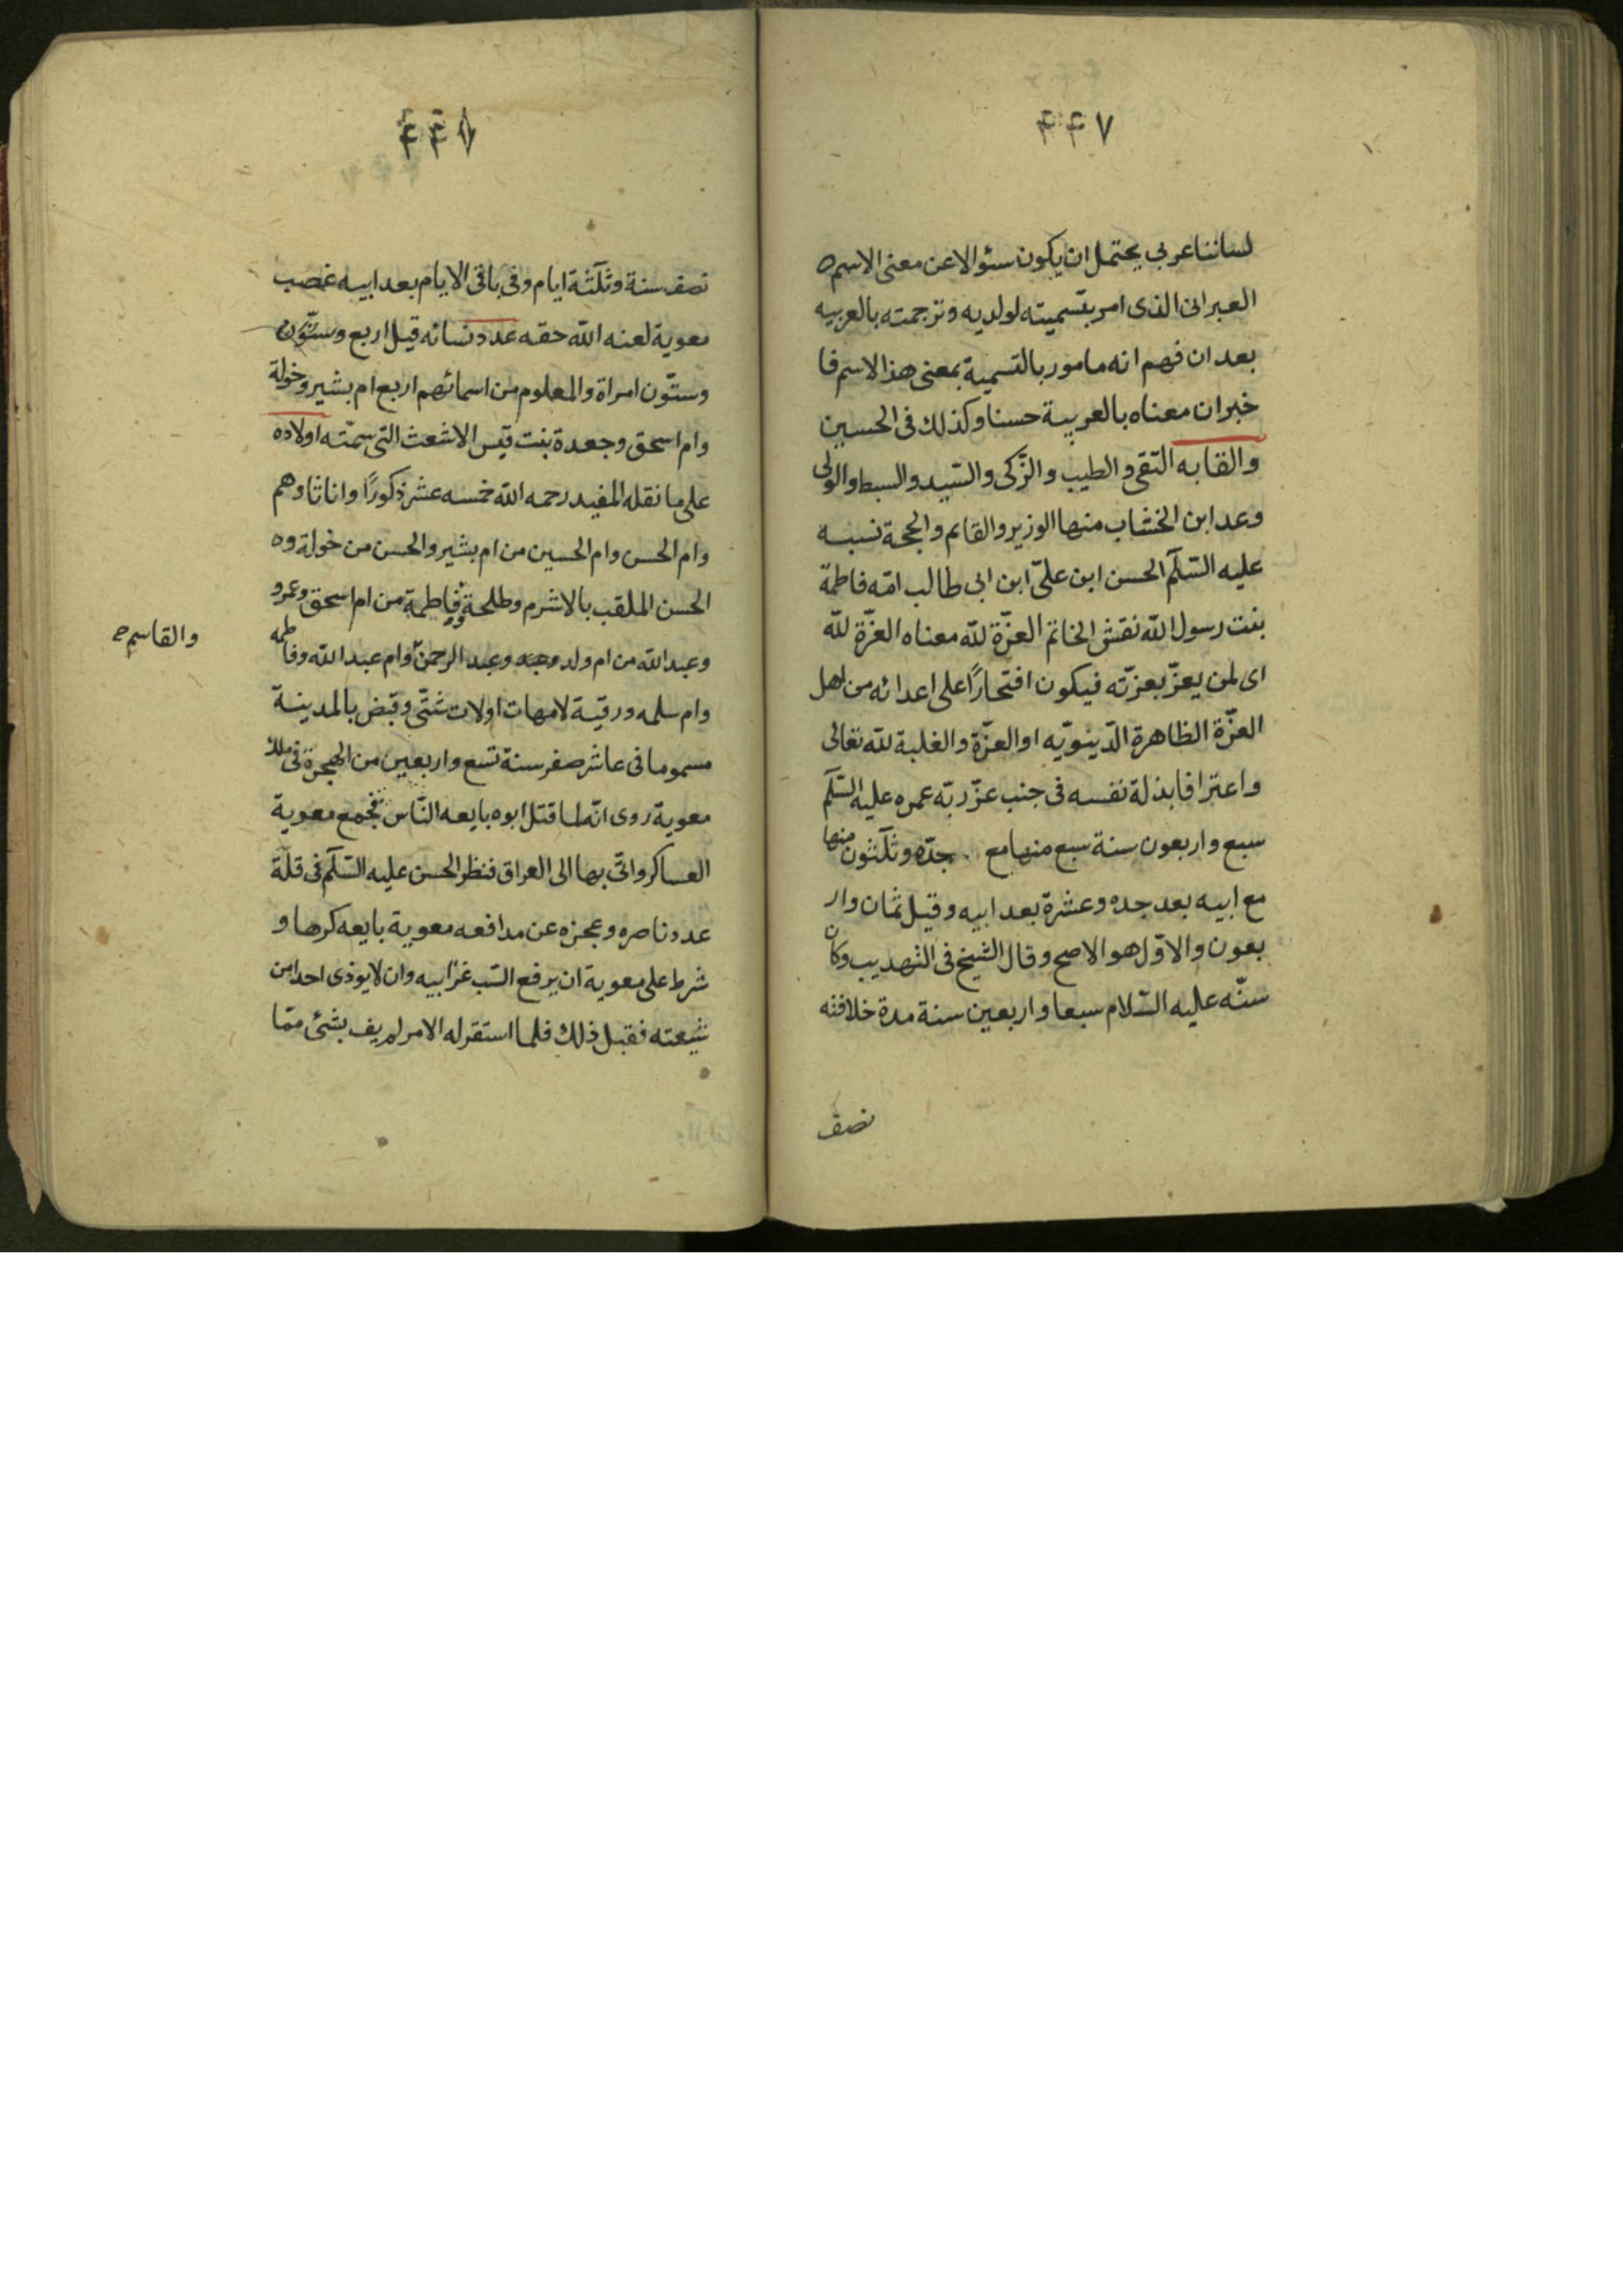 ۴۴۷
لساننا عربي يحتمل ان يكون سئوالا عن معنى الاسم
العبرانى الذى امر بتسميته لولديه وترجمته بالعربيه
بعد ان فهم انه مامور بالتسمية بمعنى هذا الاسم فا
خبران معناه بالعربية حسنا وكذلك فى الحسين
والقابه التقى والطيب والزّكى والسّيد والسبط والولى
وعد ابن الخشاب منها الوزير والقايم والحجة نسبه
عليه السّلم الحسن ابن علىّ ابن ابى طالب امّه فاطمة
بنت رسول الله نقش الخاتم العزّة للّه معناه العزّة للّه
اى لمن يعزّ بعزته فيكون افتخارًا على اعدائه من اهل
العزّة الظاهرة الدّينويّه او العزّة والغلبة للّه تعالى
واعترافا بذلة نفسه فى جنب عزّ ربّه عمره عليه السّلم
سبع واربعون سنة سبع منها مع جدّه وثلثون منها
مع ابيه بعد جده وعشرة بعد ابيه وقيل ثمان وار
بعون والاوّل هو الاصح وقال الشيخ فى التهذيب وكان
سنّه عليه السّلام سبعا واربعين سنة مدة خلافته
نصف
۴۴۸
نصف سنة وثلثة ايام وفى باقى الايام بعد ابيه غصب
معوية لعنه الله حقه عدد نسائه قيل اربع وستّون
وستّون امراة والمعلوم من اسمائهم اربع ام بشير وخولة
وام اسحق وجعدة بنت قيس الاشعث التى سمّته اولاده
على ما نقله المفيد رحمه الله خمسه عشر ذكورًا واناثا وهم
وام الحسن وام الحسين من ام بشير والحسن من خولة وه
الحسن الملقب بالاشرم وطلحة وفاطمة من ام اسحق وعمرو
والقاسم
وعبد الله من ام ولد وعبد الرحمن وام عبد الله وفاطمه
وام سلمه ورقية لامهات اولات شتّى وقبض بالمدينة
مسموما فى عاشر صفر سنة تسع واربعين من الهجرة فى ملك
معوية روى انّه لما قتل ابوه بايعه النّاس فجمع معوية
العساكر واتى بها الى العراق فنظر الحسن عليه السّلم فى قلّة
عدد ناصره وعجزه عن مدافعه معوية بايعه كرها و
شرط على معوية ان يرفع السّب عن ابيه وان لا يوذى احدا من
شيعته فقبل ذلك فلما استقر له الامر لم يف بشئ ممّا